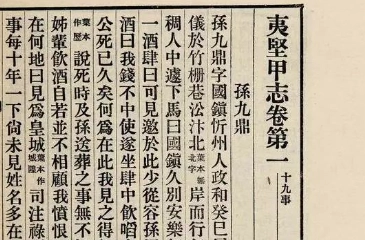 夷堅甲志卷第一 十九事
孫九鼎
孫九鼎字國鎮忻州人政和癸巳居
儀於竹柵巷沿汴北葉本無北字岸而行
稠人中遽下馬曰國鎮久別安樂
一酒肆曰可見邀於此少從容孫
酒曰我錢不中使遂坐肆中飲啗
公死已久矣何爲在此我見之得
葉本作歷說死時及孫送葬之事無不
姊輩飲酒自若並不相顧我憤恨
在何地曰見爲皇城葉本作城隍司注祿
事每十年一下尚未見姓名多在